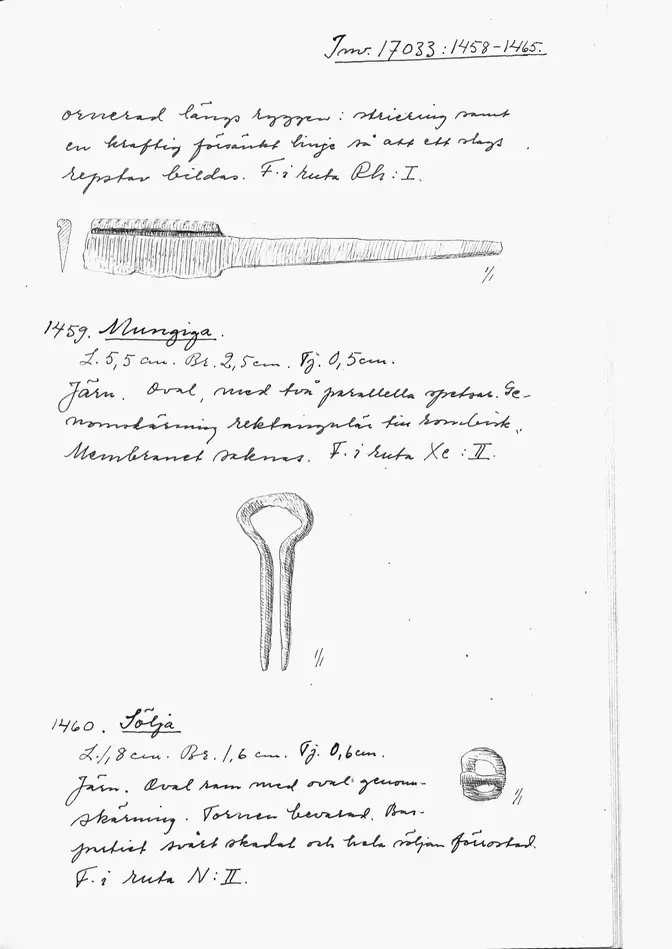 Inv. 17033:1458-1465.
ornerad längs ryggen: striering samt
en kraftig försänkt linje så att ett slags
repstav bildas. F. i ruta Rh: I.
1/1
1459. Mungiga.
L. 5,5 cm. Br. 2,5 cm. Tj. 0,5 cm.
Järn. Oval, med två parallella spetsar. Ge-
nomskärning rektangulär till rombisk.
Membranet saknas. F. i ruta Xc: II.
1/1
1460. Sölja
L. 1,8 cm. Br. 1,6 cm. Tj. 0,6 cm.
Järn. Oval ram med oval genom-
skärning. Tornen bevarad. Bas-
partiet svårt skadat och hela söljan förrostad.
F. i ruta N: II.
1/1